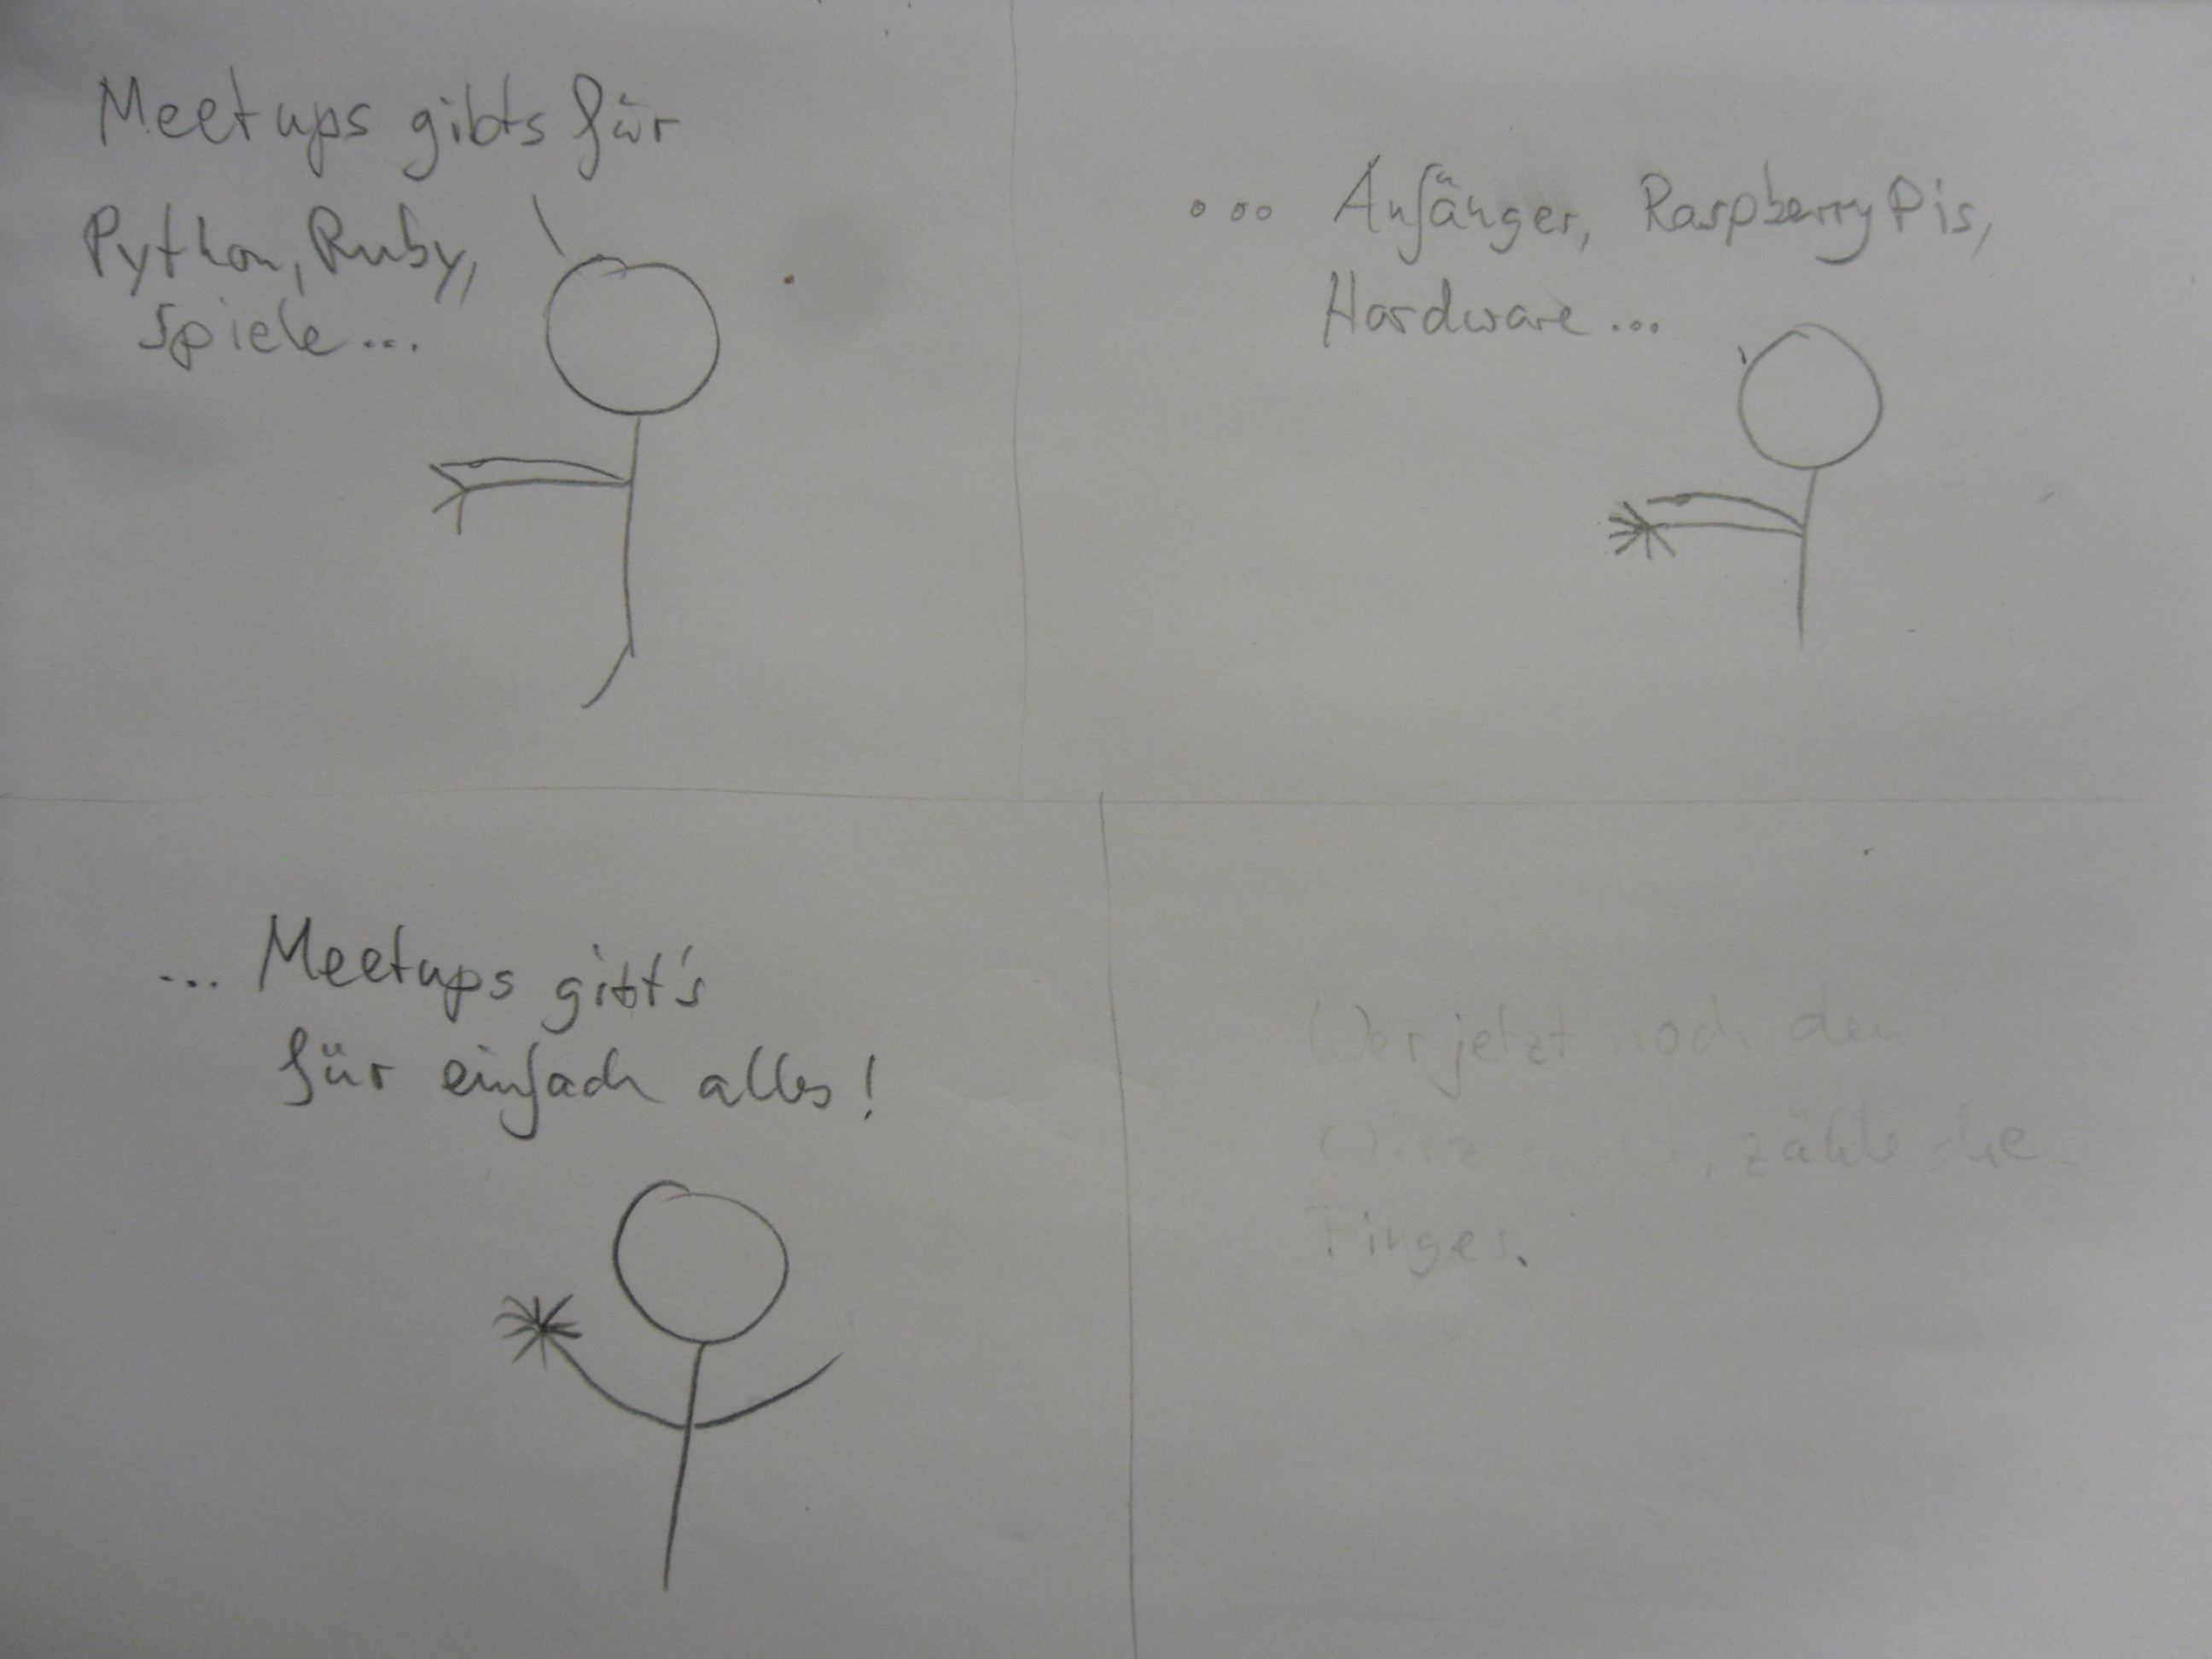 Meetups gibts für
Python, Ruby,
Spiele...
... Anfänger, RaspberryPis,
Hardware...
... Meetups gibt's
für einfach alles!
Wer jetzt noch den
Witz sucht, zähle die
Finger.